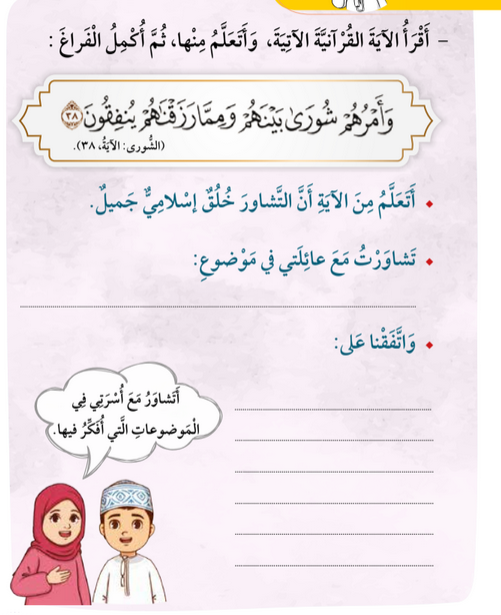 – أَقْرَأُ الآيَةَ القُرْآنِيَّةَ الآتِيَةَ، وَأَتَعَلَّمُ مِنْها، ثُمَّ أُكْمِلُ الْفَراغَ :
وَأَمْرُهُمْ شُورَىٰ بَيْنَهُمْ وَمِمَّا رَزَقْنَٰهُمْ يُنفِقُونَ ٣٨
(الشُّورى: الآيَةُ، ٣٨).
• أَتَعَلَّمُ مِنَ الآيَةِ أَنَّ التَّشاورَ خُلُقٌ إسْلامِيٌّ جَميلٌ.
• تَشاوَرْتُ مَعَ عائِلَتي في مَوْضوعِ:
• وَاتَّفَقْنا عَلى:
أَتَشاوَرُ مَعَ أُسْرَتِي فِي
الْمَوضوعاتِ الَّتي أُفَكِّرُ فيها.